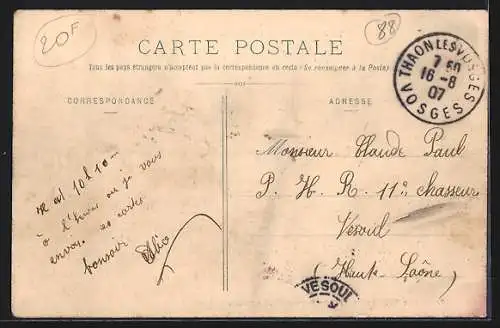 20F
88
CARTE POSTALE
Tous les pays étrangers n'acceptent pas la correspondance au recto (Se renseigner à la Poste)
CORRESPONDANCE
ADRESSE
THAON LES VOSGES
7 50
16-8
07
VOSGES
Monsieur Claude Paul
P. H. R. 11e chasseur
Vesoul
(Haute-Saône)
10h10
à où je vous
envoie cartes
bonsoir
VESOUL